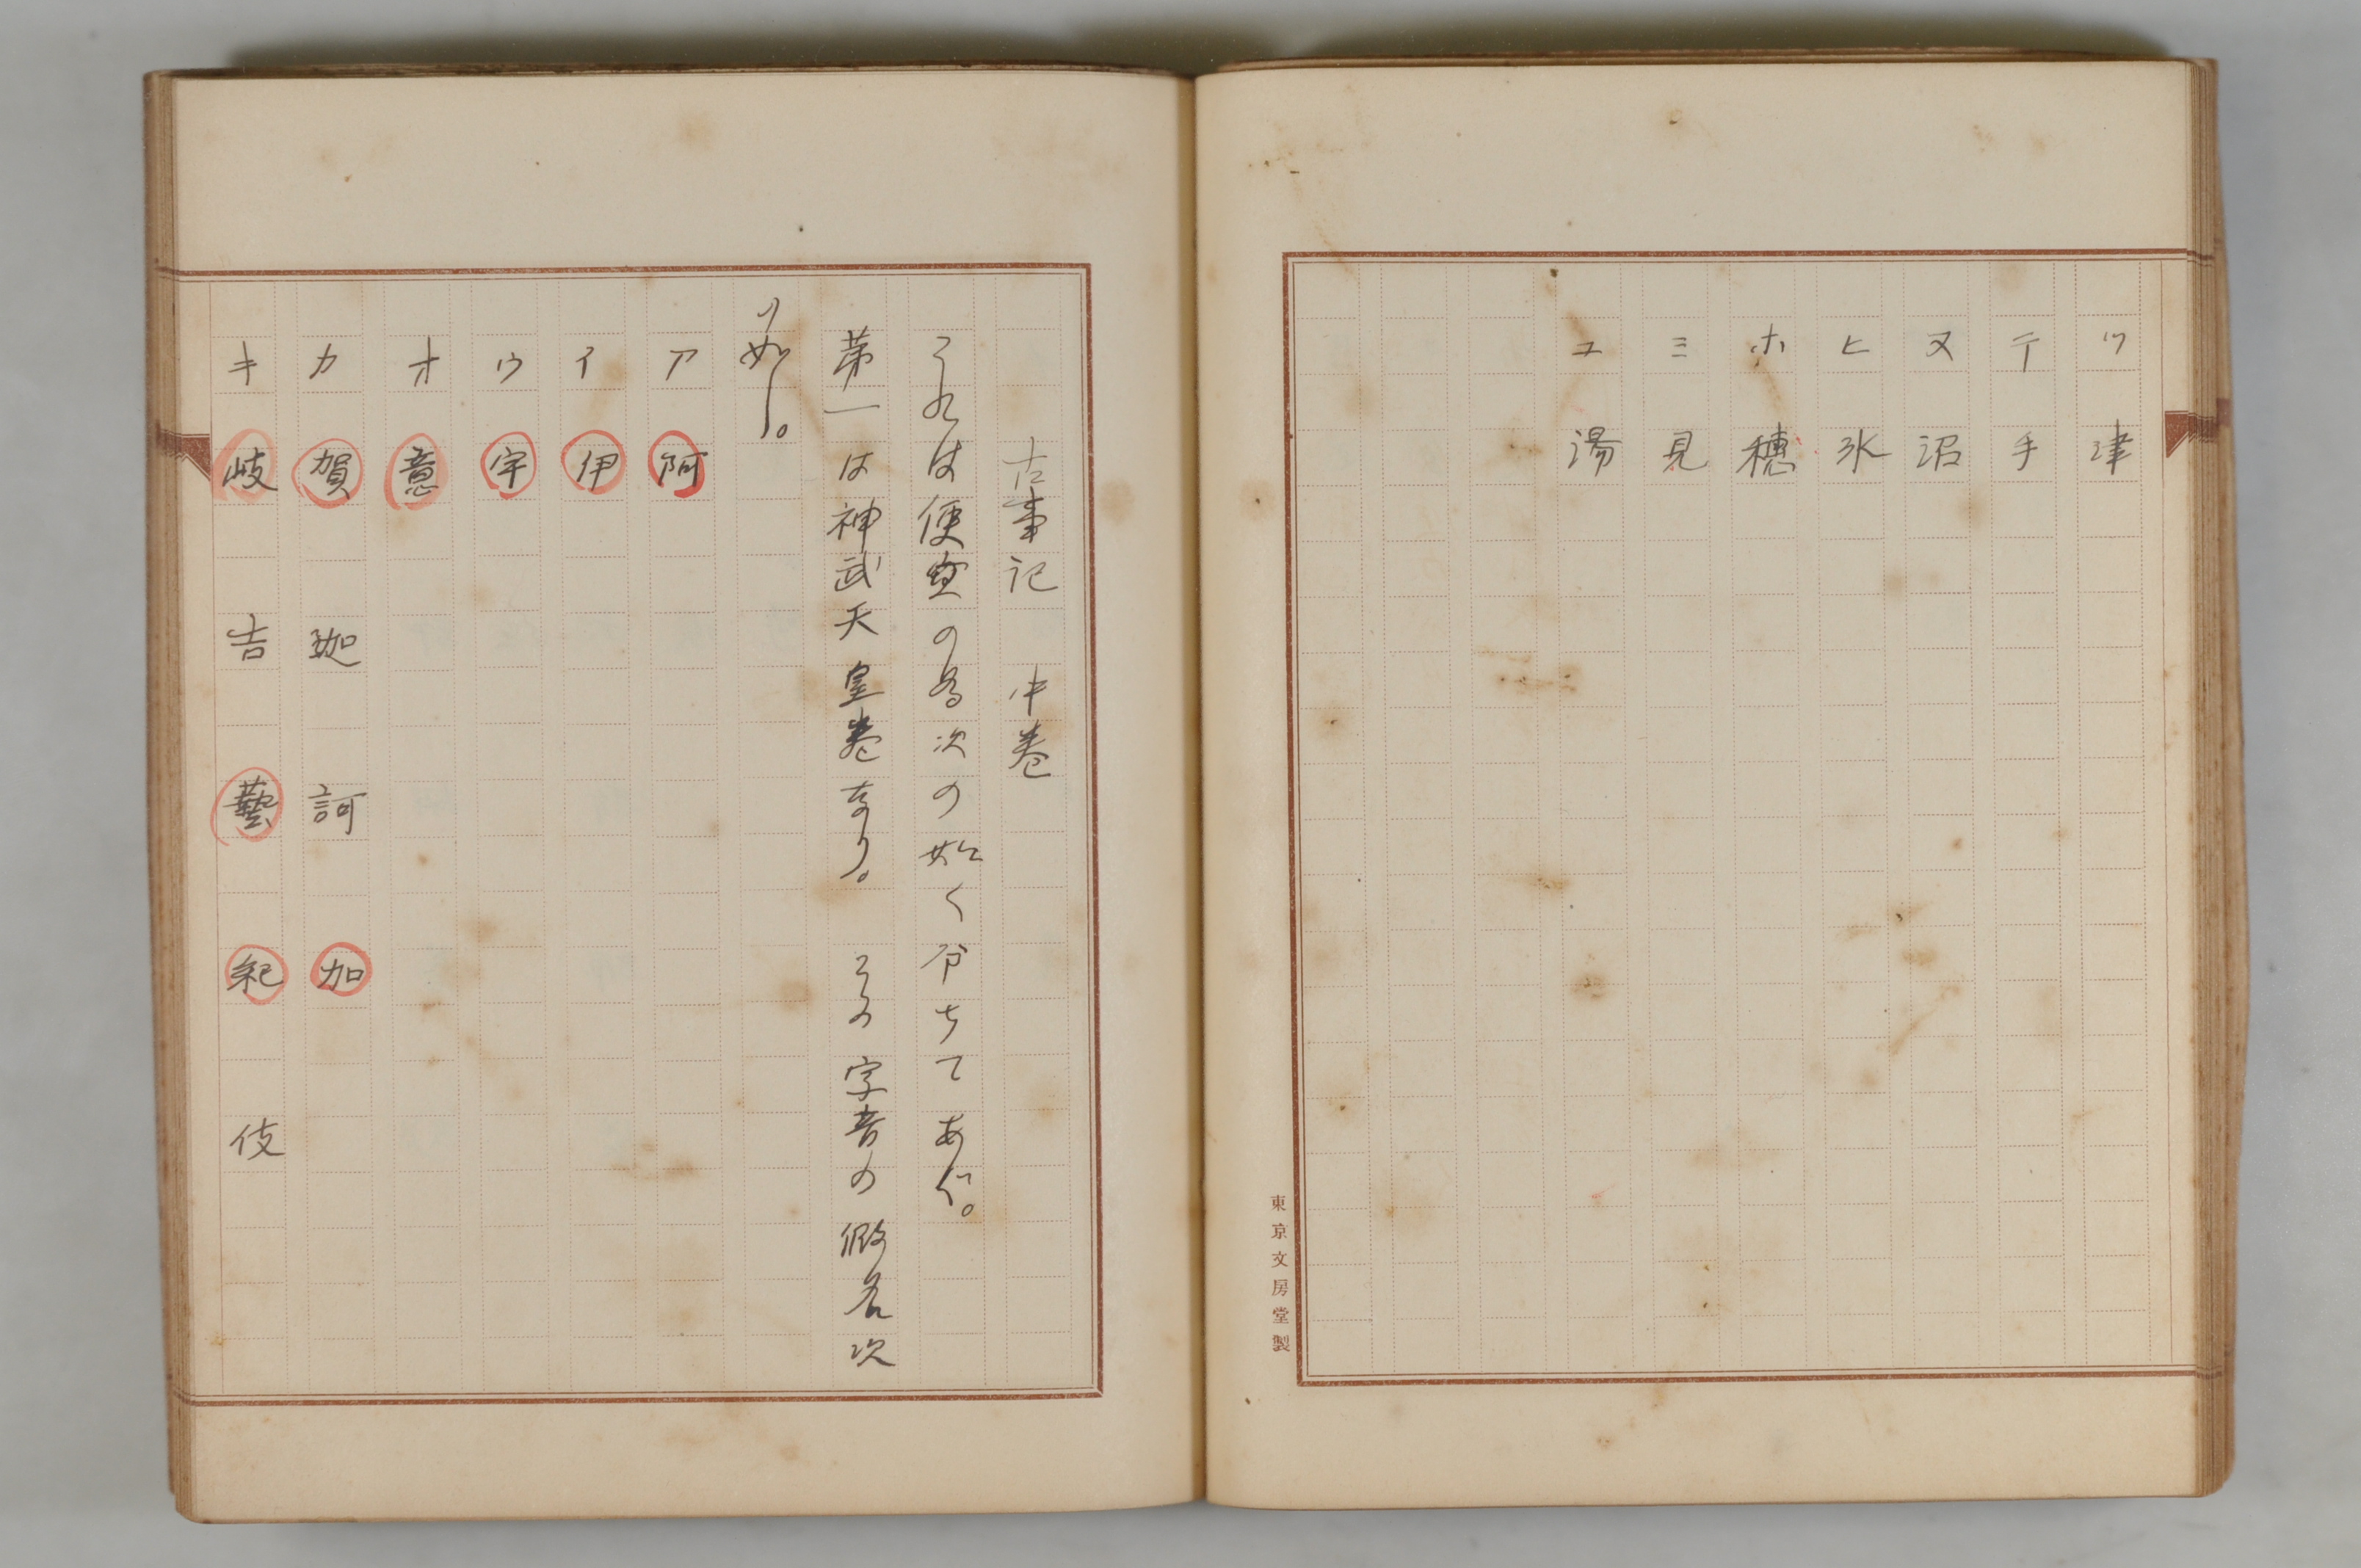 ツ 津
テ 手
ヌ 沼
ヒ 氷
ホ 穗
ミ 見
ユ 湯
東京文房堂製
古事記 中卷
これは便宜の為次の如く分ちてあぐ。
第一は神武天皇卷なり。 その字音の假名次
の如し。
ア 阿
イ 伊
ウ 宇
オ 意
カ 賀 迦 訶 加
キ 岐 吉 藝 紀 伎